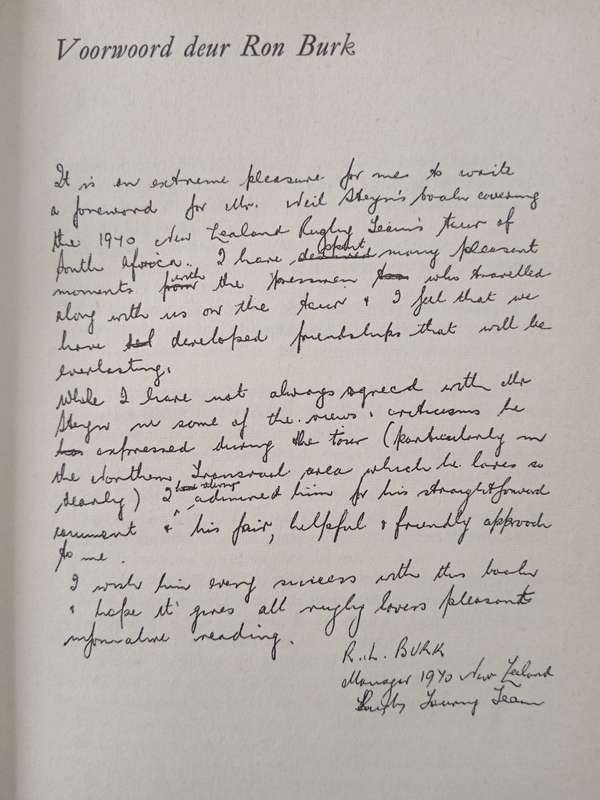 Voorwoord deur Ron Burk
It is an extreme pleasure for me to write
a foreword for Mr. Neil Steyn's book covering
the 1970 New Zealand Rugby Team's tour of
South Africa. I have spent many pleasant
moments with the pressmen who travelled
along with us on the tour & I feel that we
have developed friendships that will be
everlasting.
While I have not always agreed with Mr
Steyn in some of the views & criticisms he
expressed during the tour (particularly in
the Northern Transvaal area which he loves so
dearly) I have always admired him for his straightforward
comment & his fair, helpful & friendly approach
to me.
I wish him every success with this book
& hope it gives all rugby lovers pleasant &
informative reading.
R.L. BURK
Manager 1970 New Zealand
Rugby Touring Team